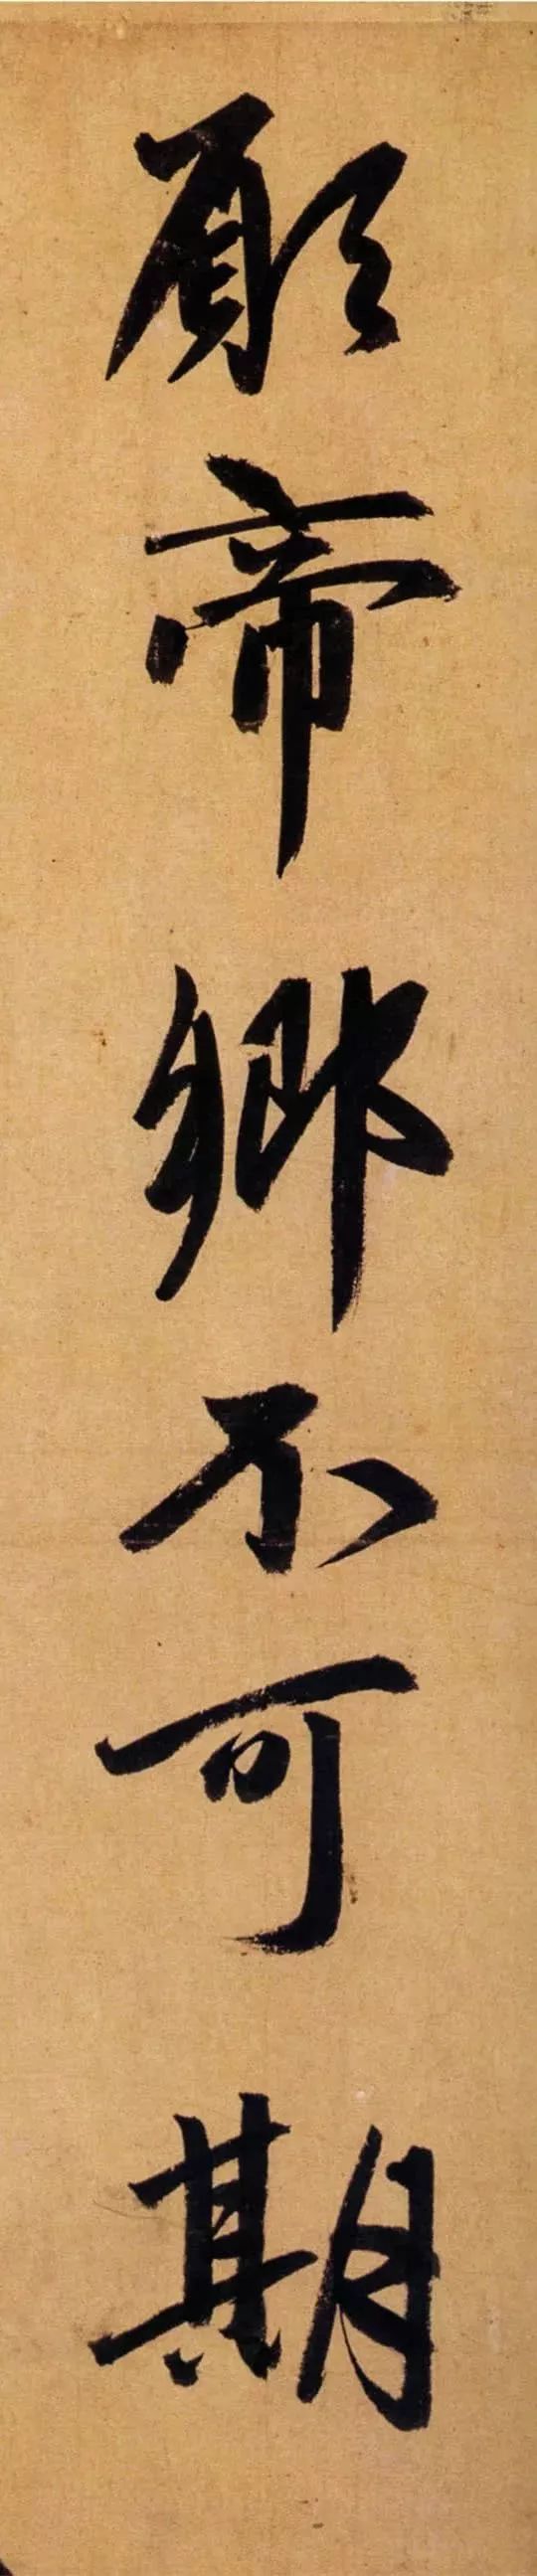 願帝鄉不可期